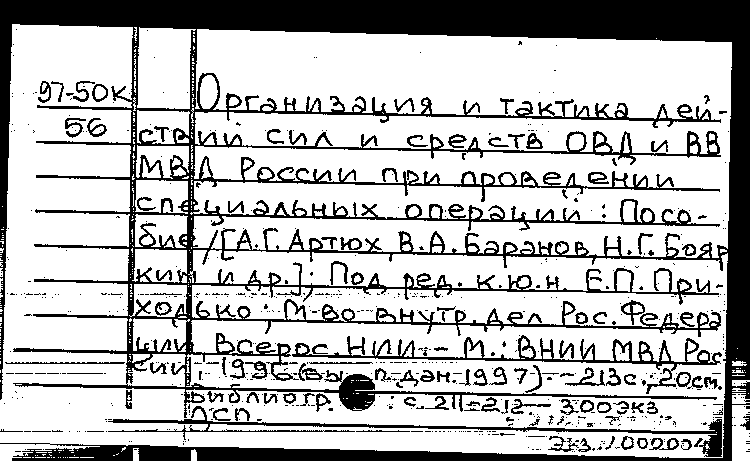 97-50К
56
Организация и тактика дей-
ствий сил и средств ОВД и ВВ
МВД России при проведении
специальных операций : Посо-
бие / [А.Г. Артюх, В.А. Баранов, Н.Г. Бояр
кин и др.]; Под ред. к.ю.н. Е.П. При-
ходько ; М-во внутр. дел Рос. Федера
ции Всерос. НИИ. - М. : ВНИИ МВД Рос
сии, 1996 (вы п. дан. 1997). - 213 с.; 20 см.
Библиогр. : с. 211-212. - 300 экз
ДСП.
Экз. 1 000004